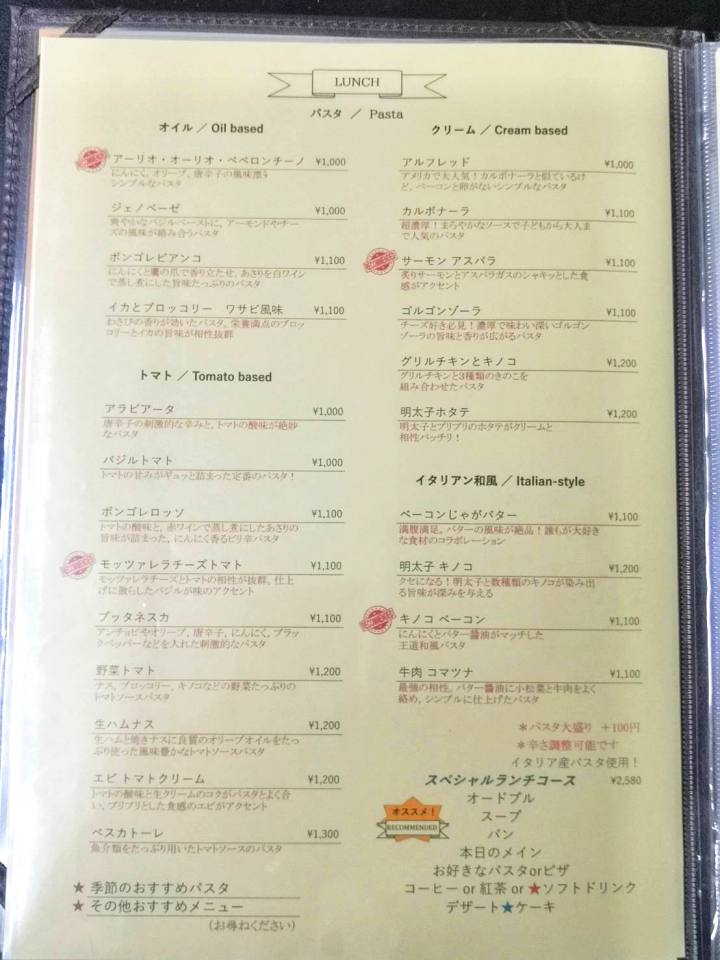 LUNCH
パスタ ／ Pasta
オイル ／ Oil based
アーリオ・オーリオ・ペペロンチーノ ¥1,000
にんにく, オリーブ, 唐辛子の風味漂う
シンプルなパスタ
ジェノベーゼ ¥1,000
爽やかなバジルペーストに, アーモンドやチー
ズの風味が絡み合うパスタ
ボンゴレビアンコ ¥1,100
にんにくと鷹の爪で香り立たせ, あさりを白ワイン
で蒸し煮にした旨味たっぷりのパスタ
イカとブロッコリー ワサビ風味 ¥1,100
わさびの香りが効いたパスタ。栄養満点のブロッ
コリーとイカの旨味が相性抜群
トマト / Tomato based
アラビアータ ¥1,000
唐辛子の刺激的な辛みと, トマトの酸味が絶妙
なパスタ
バジルトマト ¥1,000
トマトの甘みがギュッと詰まった定番のパスタ！
ボンゴレロッソ ¥1,100
トマトの酸味と, 赤ワインで蒸し煮にしたあさりの
旨味が詰まった, にんにく香るピリ辛パスタ
モッツァレラチーズトマト ¥1,100
モッツァレラチーズとトマトの相性が抜群。仕上
げに散らしたバジルが味のアクセント
プッタネスカ ¥1,100
アンチョビやオリーブ, 唐辛子, にんにく, ブラッ
クペッパーなどを入れた刺激的なパスタ
野菜トマト ¥1,200
ナス, ブロッコリー, キノコなどの野菜たっぷりの
トマトソースパスタ
生ハムナス ¥1,200
生ハムと焼きナスに良質のオリーブオイルをたっ
ぷり使った風味豊かなトマトソースパスタ
エビ トマトクリーム ¥1,200
トマトの酸味と生クリームのコクがパスタとよく合
い, プリプリとした食感のエビがアクセント
ペスカトーレ ¥1,300
魚介類をたっぷり用いたトマトソースのパスタ
★ 季節のおすすめパスタ
★ その他おすすめメニュー
（お尋ねください）
クリーム / Cream based
アルフレッド ¥1,000
アメリカで大人気！カルボナーラと似ているけ
ど, ベーコンと卵がないシンプルなパスタ
カルボナーラ ¥1,100
超濃厚！まろやかなソースで子どもから大人ま
で人気のパスタ
サーモン アスパラ ¥1,100
炙りサーモンとアスパラガスのシャキッとした食
感がアクセント
ゴルゴンゾーラ ¥1,100
チーズ好き必見！濃厚で味わい深いゴルゴン
ゾーラの旨味と香りが広がるパスタ
グリルチキンとキノコ ¥1,200
グリルチキンと3種類のきのこを
組み合わせたパスタ
明太子ホタテ ¥1,200
明太子とプリプリのホタテがクリームと
相性バッチリ！
イタリアン和風 ／ Italian-style
ベーコンじゃがバター ¥1,100
満腹満足。バターの風味が絶品！誰もが大好き
な食材のコラボレーション
明太子 キノコ ¥1,200
クセになる！明太子と数種類のキノコが染み出
る旨味が深みを与える
キノコ ベーコン ¥1,100
にんにくとバター醤油がマッチした
王道和風パスタ
牛肉 コマツナ ¥1,100
最強の相性。バター醤油に小松菜と牛肉をよく
絡め, シンプルに仕上げたパスタ
＊パスタ大盛り ＋100円
＊辛さ調整可能です
イタリア産パスタ使用！
スペシャルランチコース ¥2,580
オードブル
スープ
パン
本日のメイン
お好きなパスタorピザ
コーヒー or 紅茶 or ★ソフトドリンク
デザート★ケーキ
オススメ！
RECOMMENDED